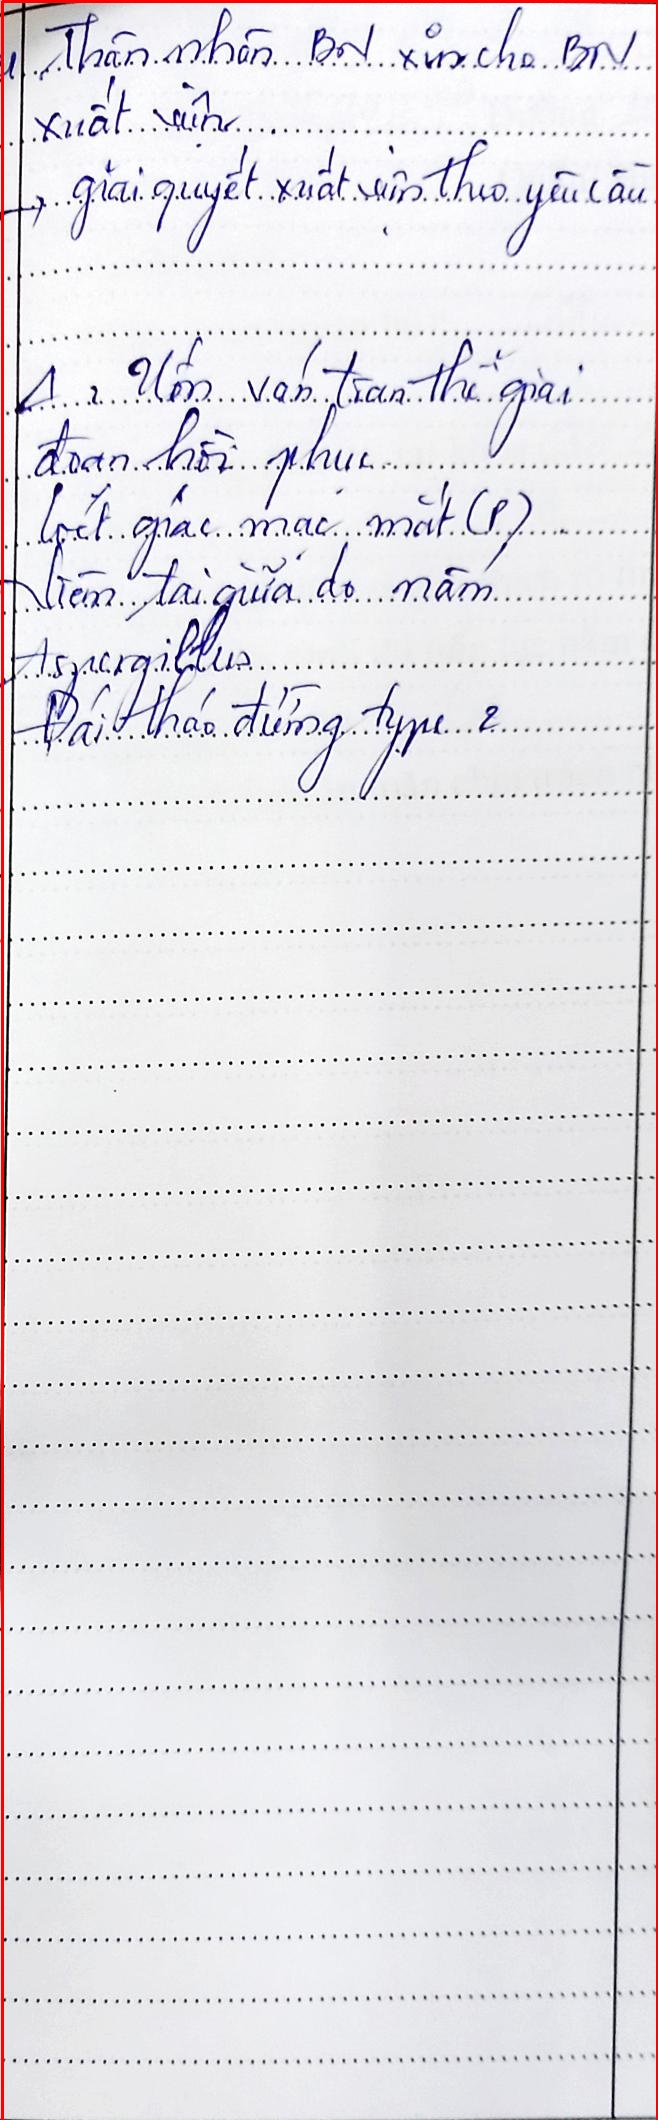 Thân nhân BN xin cho BN
xuất viện
→ giải quyết xuất viện theo yêu cầu
Δ : Uốn ván toàn thể giai
đoạn hồi phục
Loét giác mạc mắt (P)
Viêm tai giữa do nấm
Aspergillus
Đái tháo đường type 2